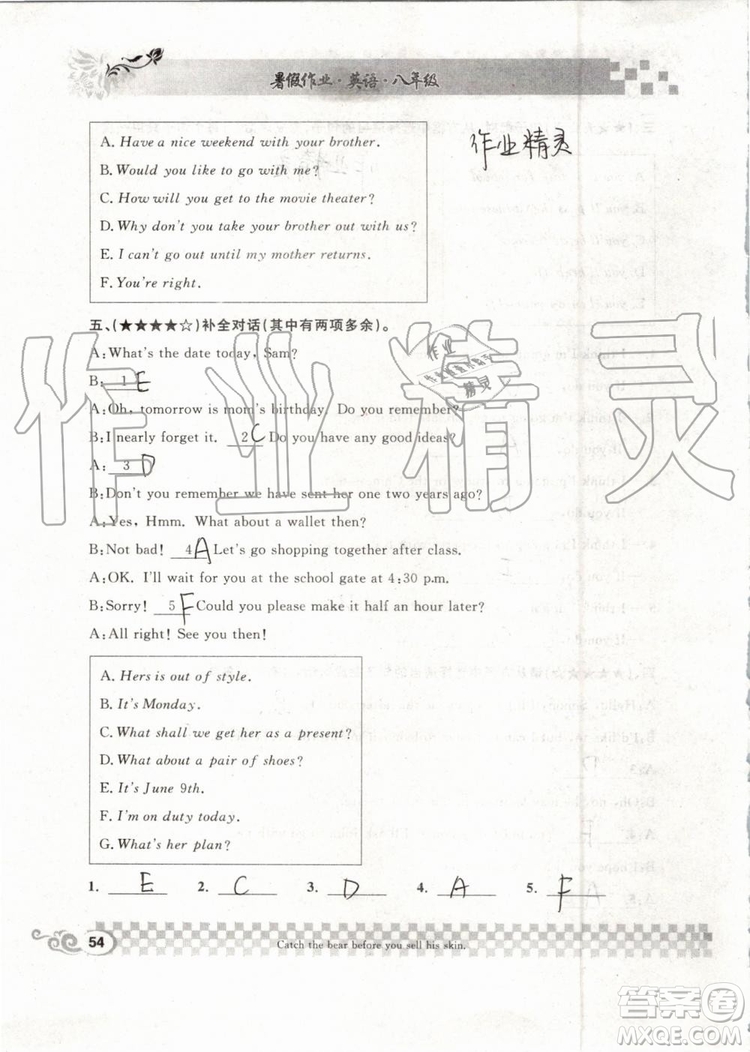 暑假作业·英语·八年级
作业精灵
A. Have a nice weekend with your brother.
B. Would you like to go with me?
C. How will you get to the movie theater?
D. Why don't you take your brother out with us?
E. I can't go out until my mother returns.
F. You're right.
五、(★★★★☆)补全对话(其中有两项多余)。
A: What's the date today, Sam?
B: 1 E
A: Oh, tomorrow is mom's birthday. Do you remember?
B: I nearly forget it. 2 C Do you have any good ideas?
A: 3 D
B: Don't you remember we have sent her one two years ago?
A: Yes, Hmm. What about a wallet then?
B: Not bad! 4 A Let's go shopping together after class.
A: OK. I'll wait for you at the school gate at 4:30 p.m.
B: Sorry! 5 F Could you please make it half an hour later?
A: All right! See you then!
作业精灵
A. Hers is out of style.
B. It's Monday.
C. What shall we get her as a present?
D. What about a pair of shoes?
E. It's June 9th.
F. I'm on duty today.
G. What's her plan?
1. E 2. C 3. D 4. A 5. F
54
Catch the bear before you sell his skin.
答案圈
MXQE.COM